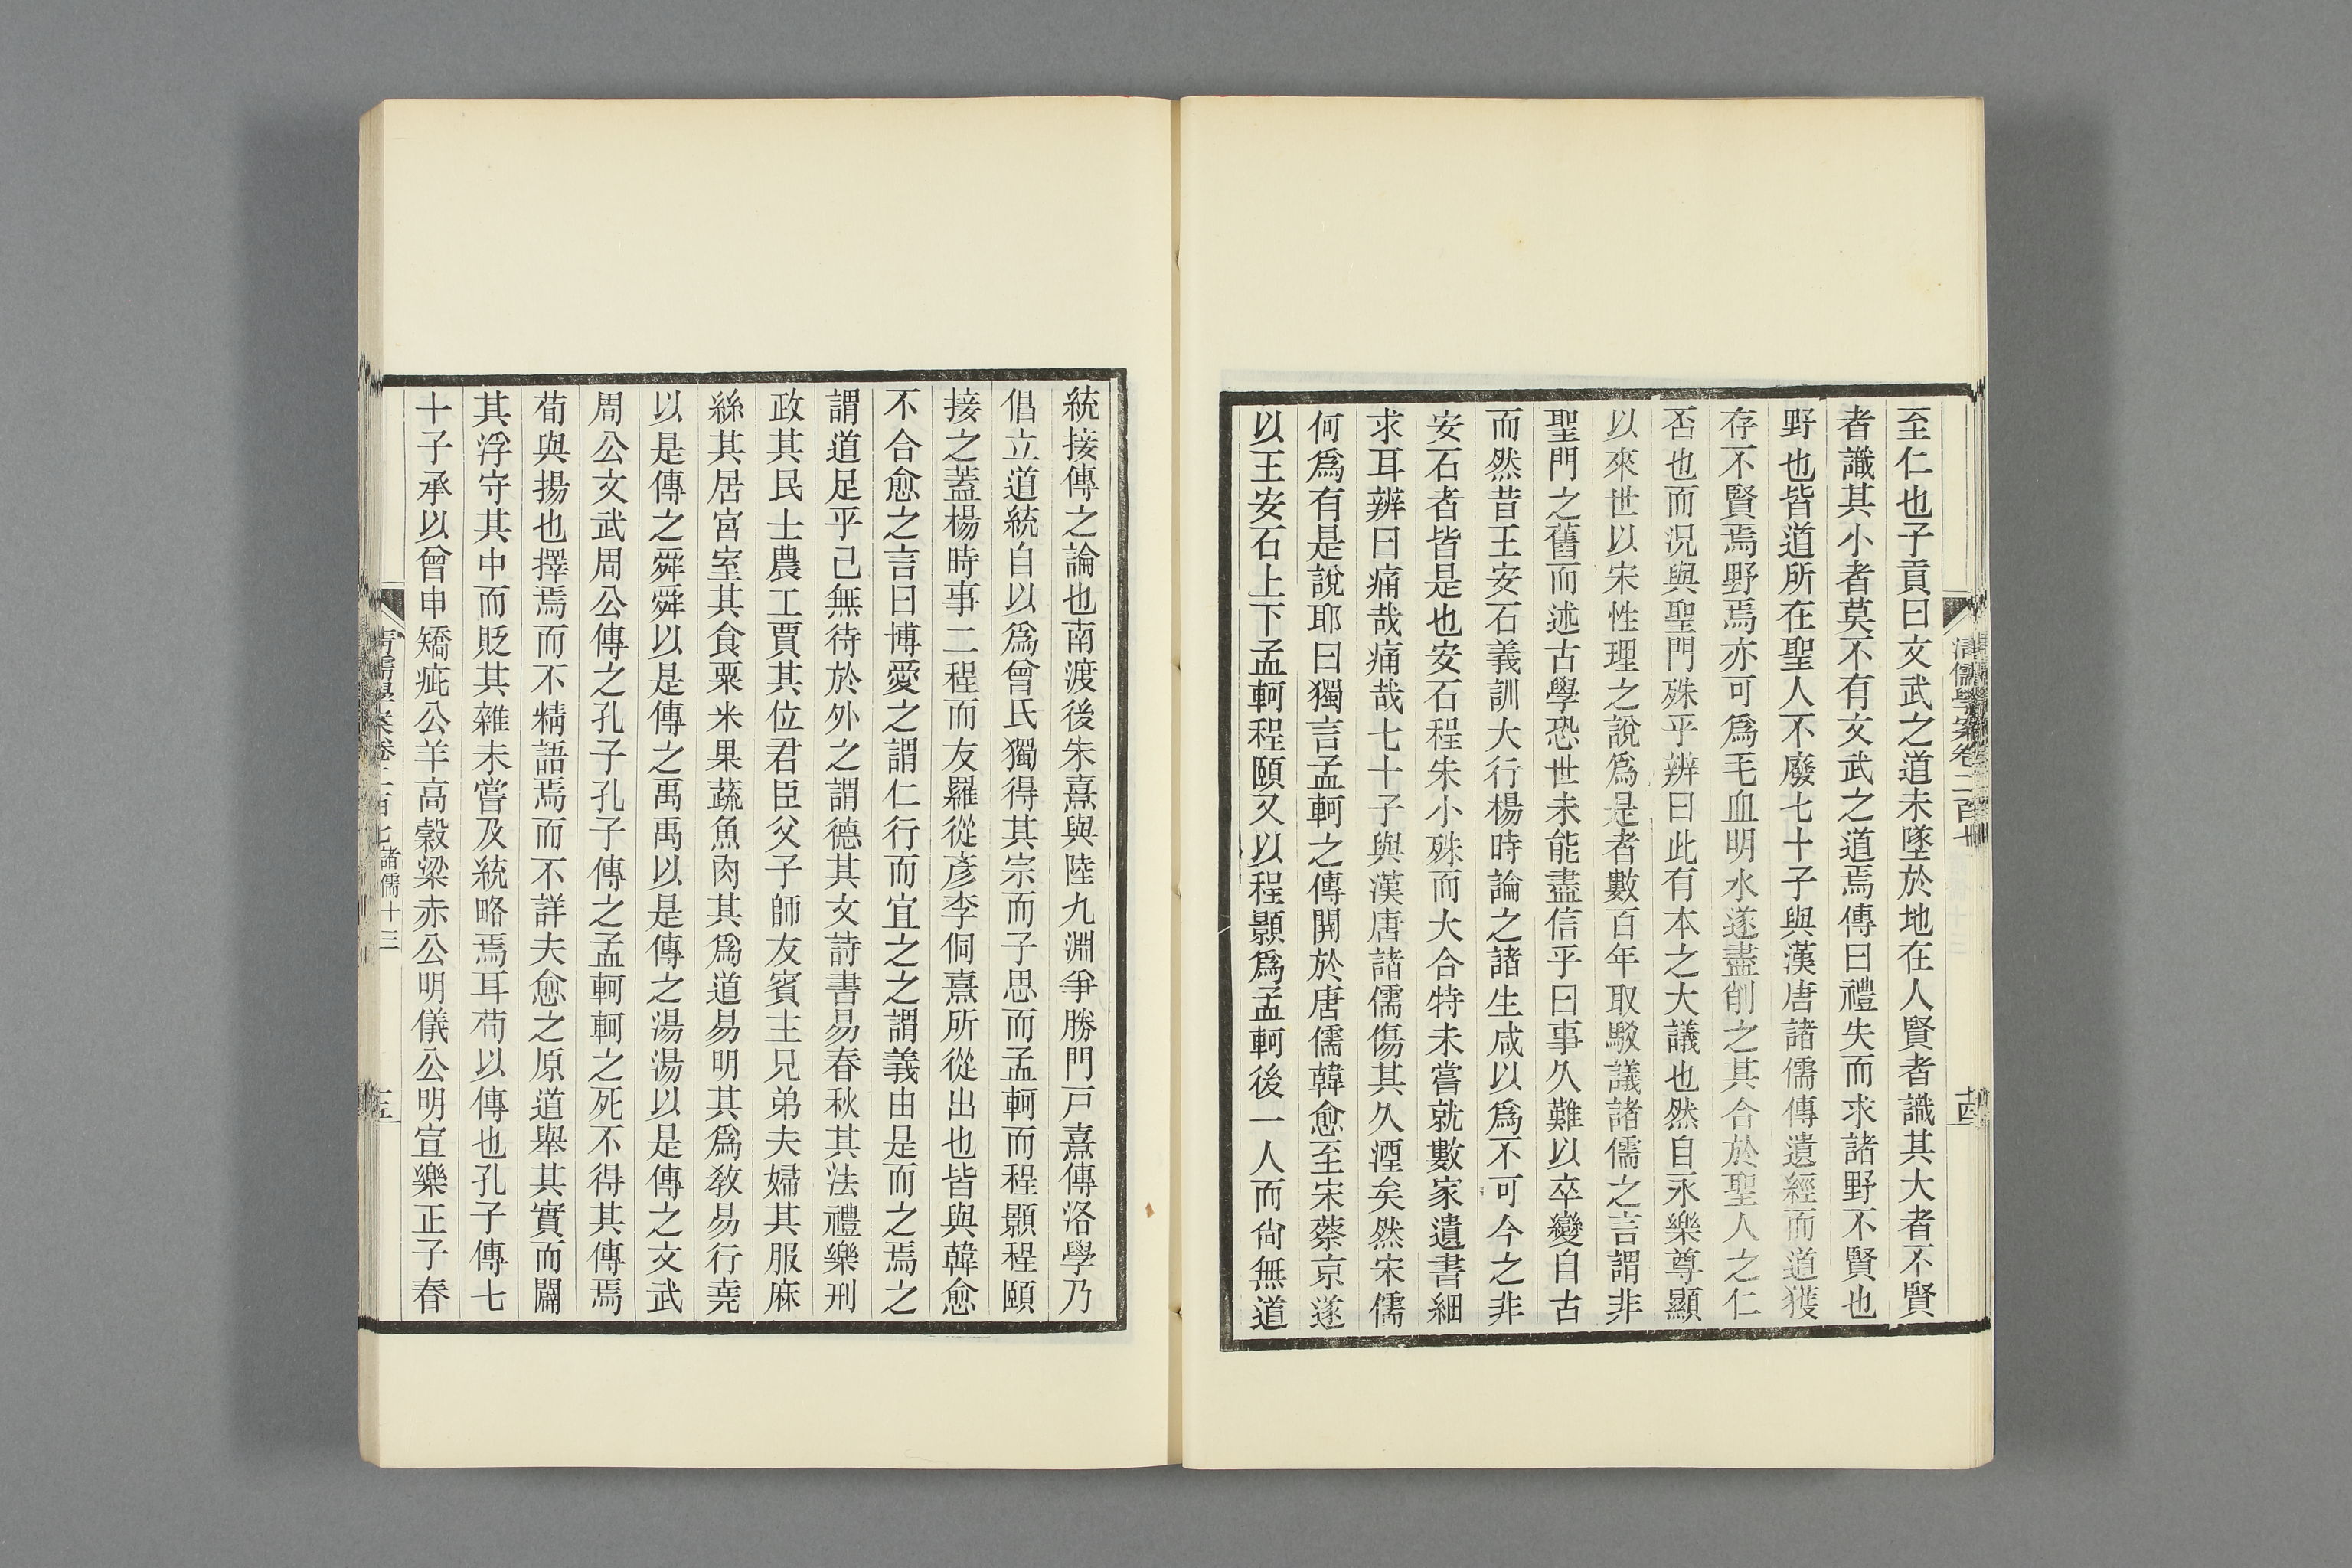 至仁也子貢曰文武之道未墜於地在人賢者識其大者不賢
者識其小者莫不有文武之道焉傳曰禮失而求諸野不賢也
野也皆道所在聖人不廢七十子與漢唐諸儒傳遺經而道獲
存不賢焉野焉亦可爲毛血明水遂盡削之其合於聖人之仁
否也而況與聖門殊乎辨曰此有本之大議也然自永樂尊顯
以來世以宋性理之說爲是者數百年取駁議諸儒之言謂非
聖門之舊而述古學恐世未能盡信乎曰事久難以卒變自古
而然昔王安石義訓大行楊時論之諸生咸以爲不可今之非
安石者皆是也安石程朱小殊而大合特未嘗就數家遺書細
求耳辨曰痛哉痛哉七十子與漢唐諸儒傷其久湮矣然宋儒
何爲有是說耶曰獨言孟軻之傳開於唐儒韓愈至宋蔡京遂
以王安石上下孟軻程頤又以程顥爲孟軻後一人而尙無道
清儒學案卷二百七
十四
統接傳之論也南渡後朱熹與陸九淵爭勝門戸熹傳洛學乃
倡立道統自以爲曾氏獨得其宗而子思而孟軻而程顥程頤
接之蓋楊時事二程而友羅從彥李侗熹所從出也皆與韓愈
不合愈之言曰博愛之謂仁行而宜之之謂義由是而之焉之
謂道足乎己無待於外之謂德其文詩書易春秋其法禮樂刑
政其民士農工賈其位君臣父子師友賓主兄弟夫婦其服麻
絲其居宮室其食粟米果蔬魚肉其爲道易明其爲敎易行堯
以是傳之舜舜以是傳之禹禹以是傳之湯湯以是傳之文武
周公文武周公傳之孔子孔子傳之孟軻軻之死不得其傳焉
荀與揚也擇焉而不精語焉而不詳夫愈之原道舉其實而闢
其浮守其中而貶其雜未嘗及統略焉耳苟以傳也孔子傳七
十子承以曾申矯疵公羊高穀梁赤公明儀公明宣樂正子春
清儒學案卷二百七 諸儒十三
十五